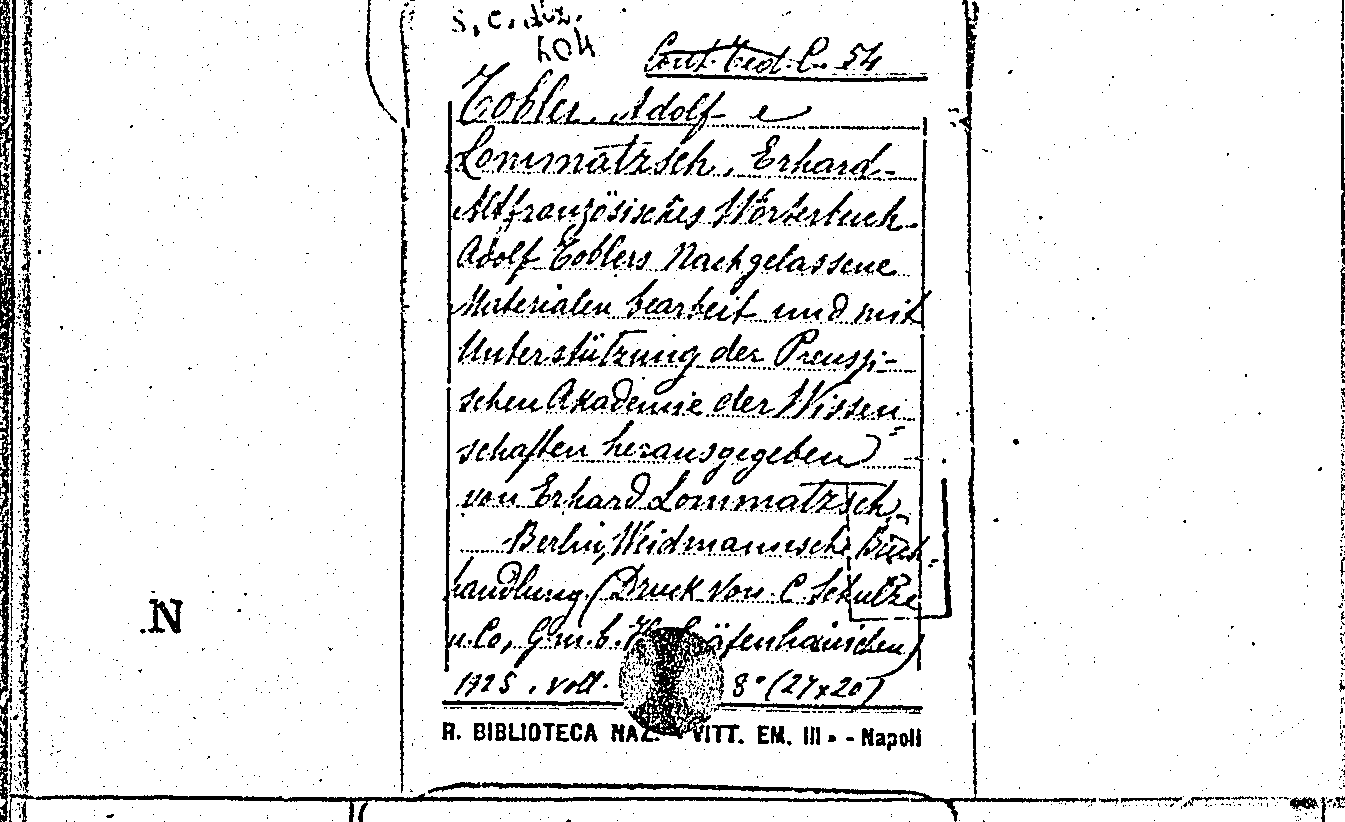 S. C. diz.
404
Cont. Ted. C. 54
Tobler, Adolf e
Lommatzsch, Erhard-
Altfranzösisches Wörterbuch.
Adolf Toblers Nachgelassene
Materialen bearbeit und mit
Unterstützung der Preussi-
schen Akademie der Wissen
schaften herausgegeben
von Erhard Lommatzsch.
Berlin, Weidmannsche Buch-
handlung (Druck von C. Schultze
u. Co, G.m.b.H. Gräfenhainichen)
1925. voll. 8° (27x20)
R. BIBLIOTECA NAZ. - VITT. EM. III - - Napoli
.N